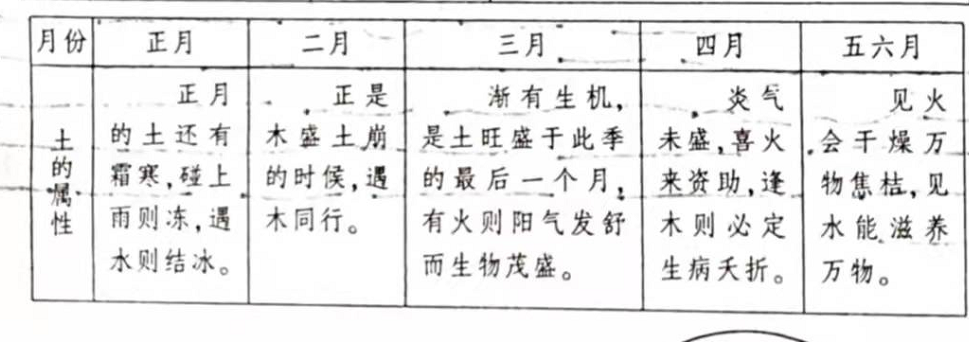 月份 正月 二月 三月 四月 五六月
土的属性
正月
的土还有
霜寒,碰上
雨则冻,遇
水则结冰。
正是
木盛土崩
的时候,遇
木同行。
渐有生机,
是土旺盛于此季
的最后一个月,
有火则阳气发舒
而生物茂盛。
炎气
未盛,喜火
来资助,逢
木则必定
生病夭折。
见火
会干燥万
物焦桔,见
水能滋养
万物。